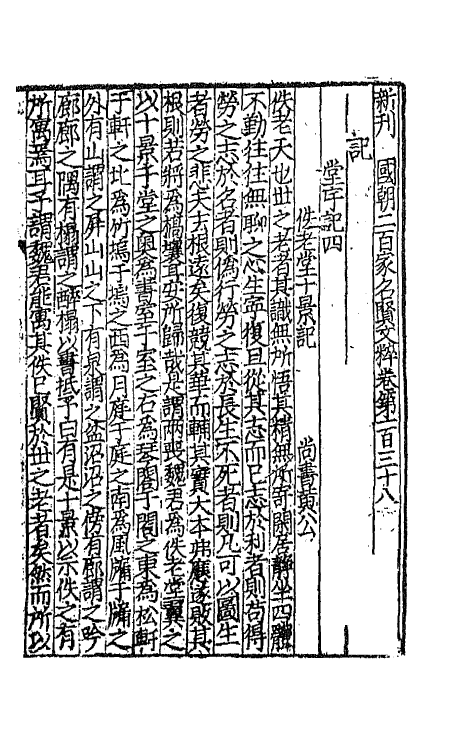 新刊　國朝二百家名賢文粹卷第一百三十八
記
堂亭記四
佚老堂十景記　尚書黄公
佚老天也世之老者其識無所悟其精無所寄閑居靜坐四體
不勤往往無聊之心生寧復且從其志而已志於利者則苟得
勞之志於名者則偽行勞之志於長生不死者則凡可以圖生
者勞之悲夫去根遠矣復競其華而輔其實大本弗應遂敗其
根則若將為槁壤耳安所歸哉是謂兩喪魏君為佚老堂翼之
以十景于堂之奥為書室于室之右為琴閣于閣之東為松軒
于軒之北為竹塢于塢之西為月庭于庭之南為風牖于牖之
外有山謂之屏山山之下有泉謂之盆沼沼之傍有廊謂之吟
廊廊之隅有榻謂之醉榻以書抵予曰有是十景以示佚之有
所寓焉耳予謂魏君能寓其佚已賢於世之老者矣然而所以